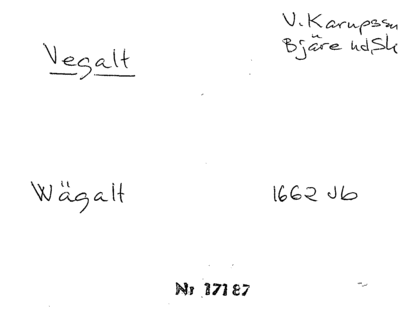 Vegalt
V. Karupssn
Bjäre hd, Sk
Wägalt
1662 Jb
Nr 17187